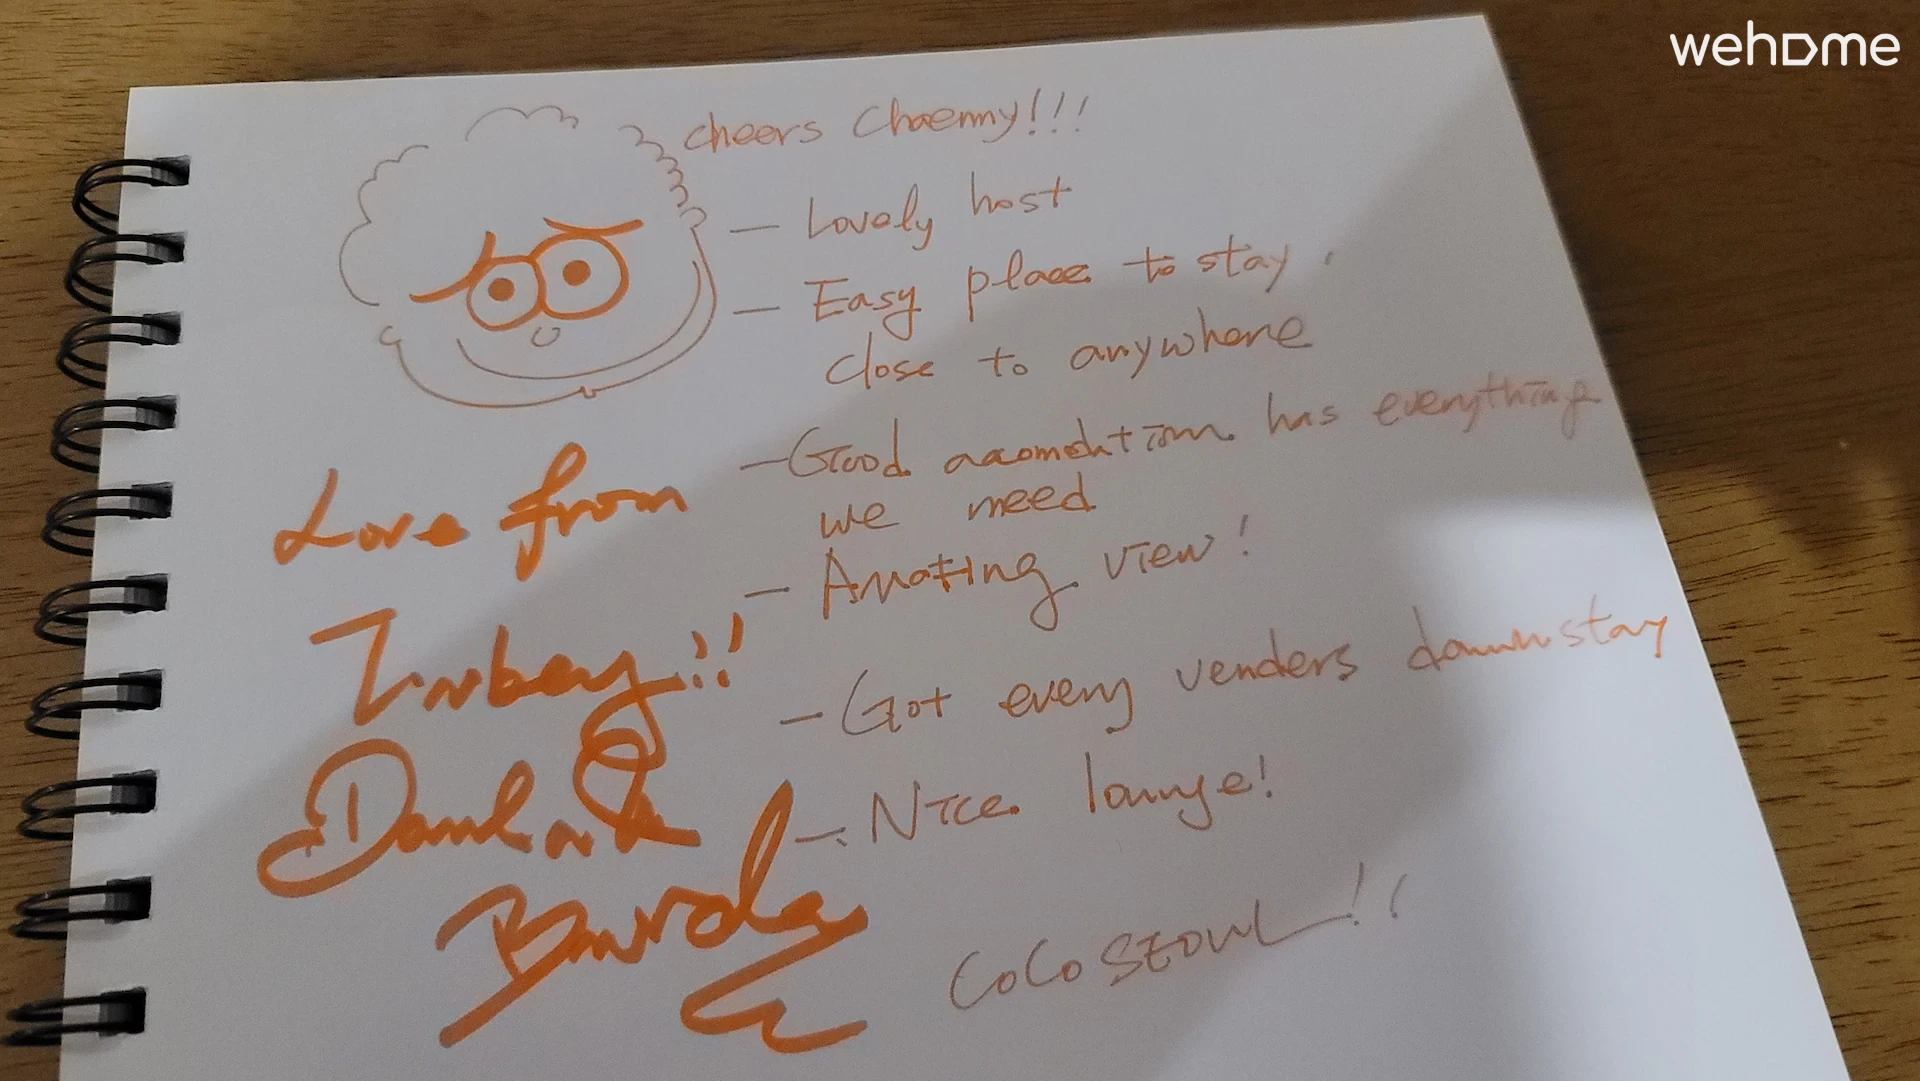 wehome
cheers Chaenny!!!
— Lovely host
— Easy place to stay.
close to anywhere
— Good accomodation has everything
we need
— Amazing view!
— Got every venders downstay
— Nice lounge!
COCO SEOUL!!
Love from